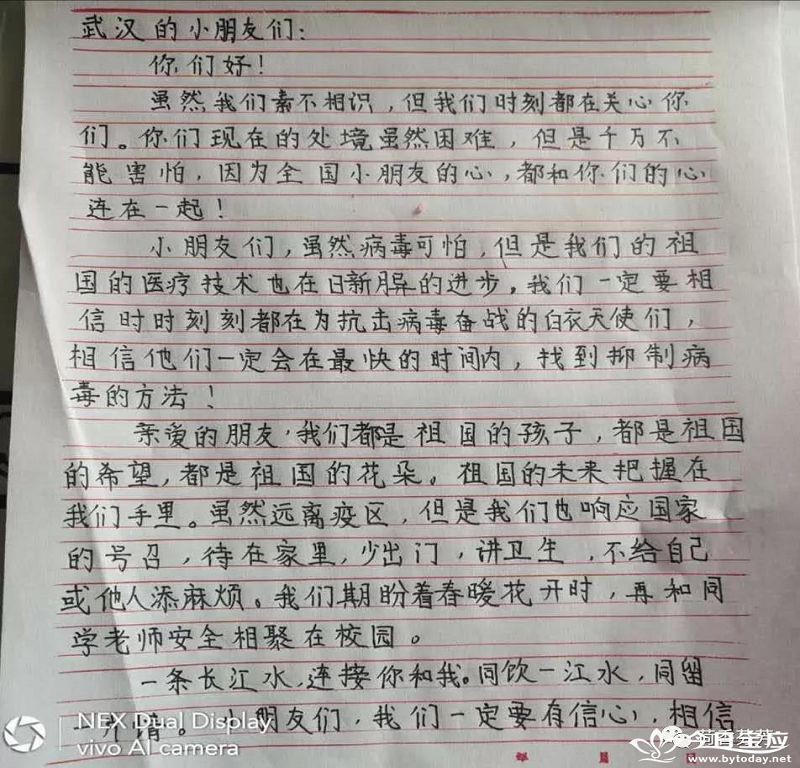 武汉的小朋友们：
你们好！
虽然我们素不相识，但我们时刻都在关心你
们。你们现在的处境虽然困难，但是千万不
能害怕，因为全国小朋友的心，都和你们的心
连在一起！
小朋友们，虽然病毒可怕，但是我们的祖
国的医疗技术也在日新月异的进步，我们一定要相
信时时刻刻都在为抗击病毒奋战的白衣天使们，
相信他们一定会在最快的时间内，找到抑制病
毒的方法！
亲爱的朋友，我们都是祖国的孩子，都是祖国
的希望，都是祖国的花朵。祖国的未来把握在
我们手里。虽然远离疫区，但是我们也响应国家
的号召，待在家里，少出门，讲卫生，不给自己
或他人添麻烦。我们期盼着春暖花开时，再和同
学老师安全相聚在校园。
一条长江水，连接你和我。同饮一江水，同留
小朋友们，我们一定要有信心，相信
NEX Dual Display
vivo AI camera
今日宝应
www.bytoday.net